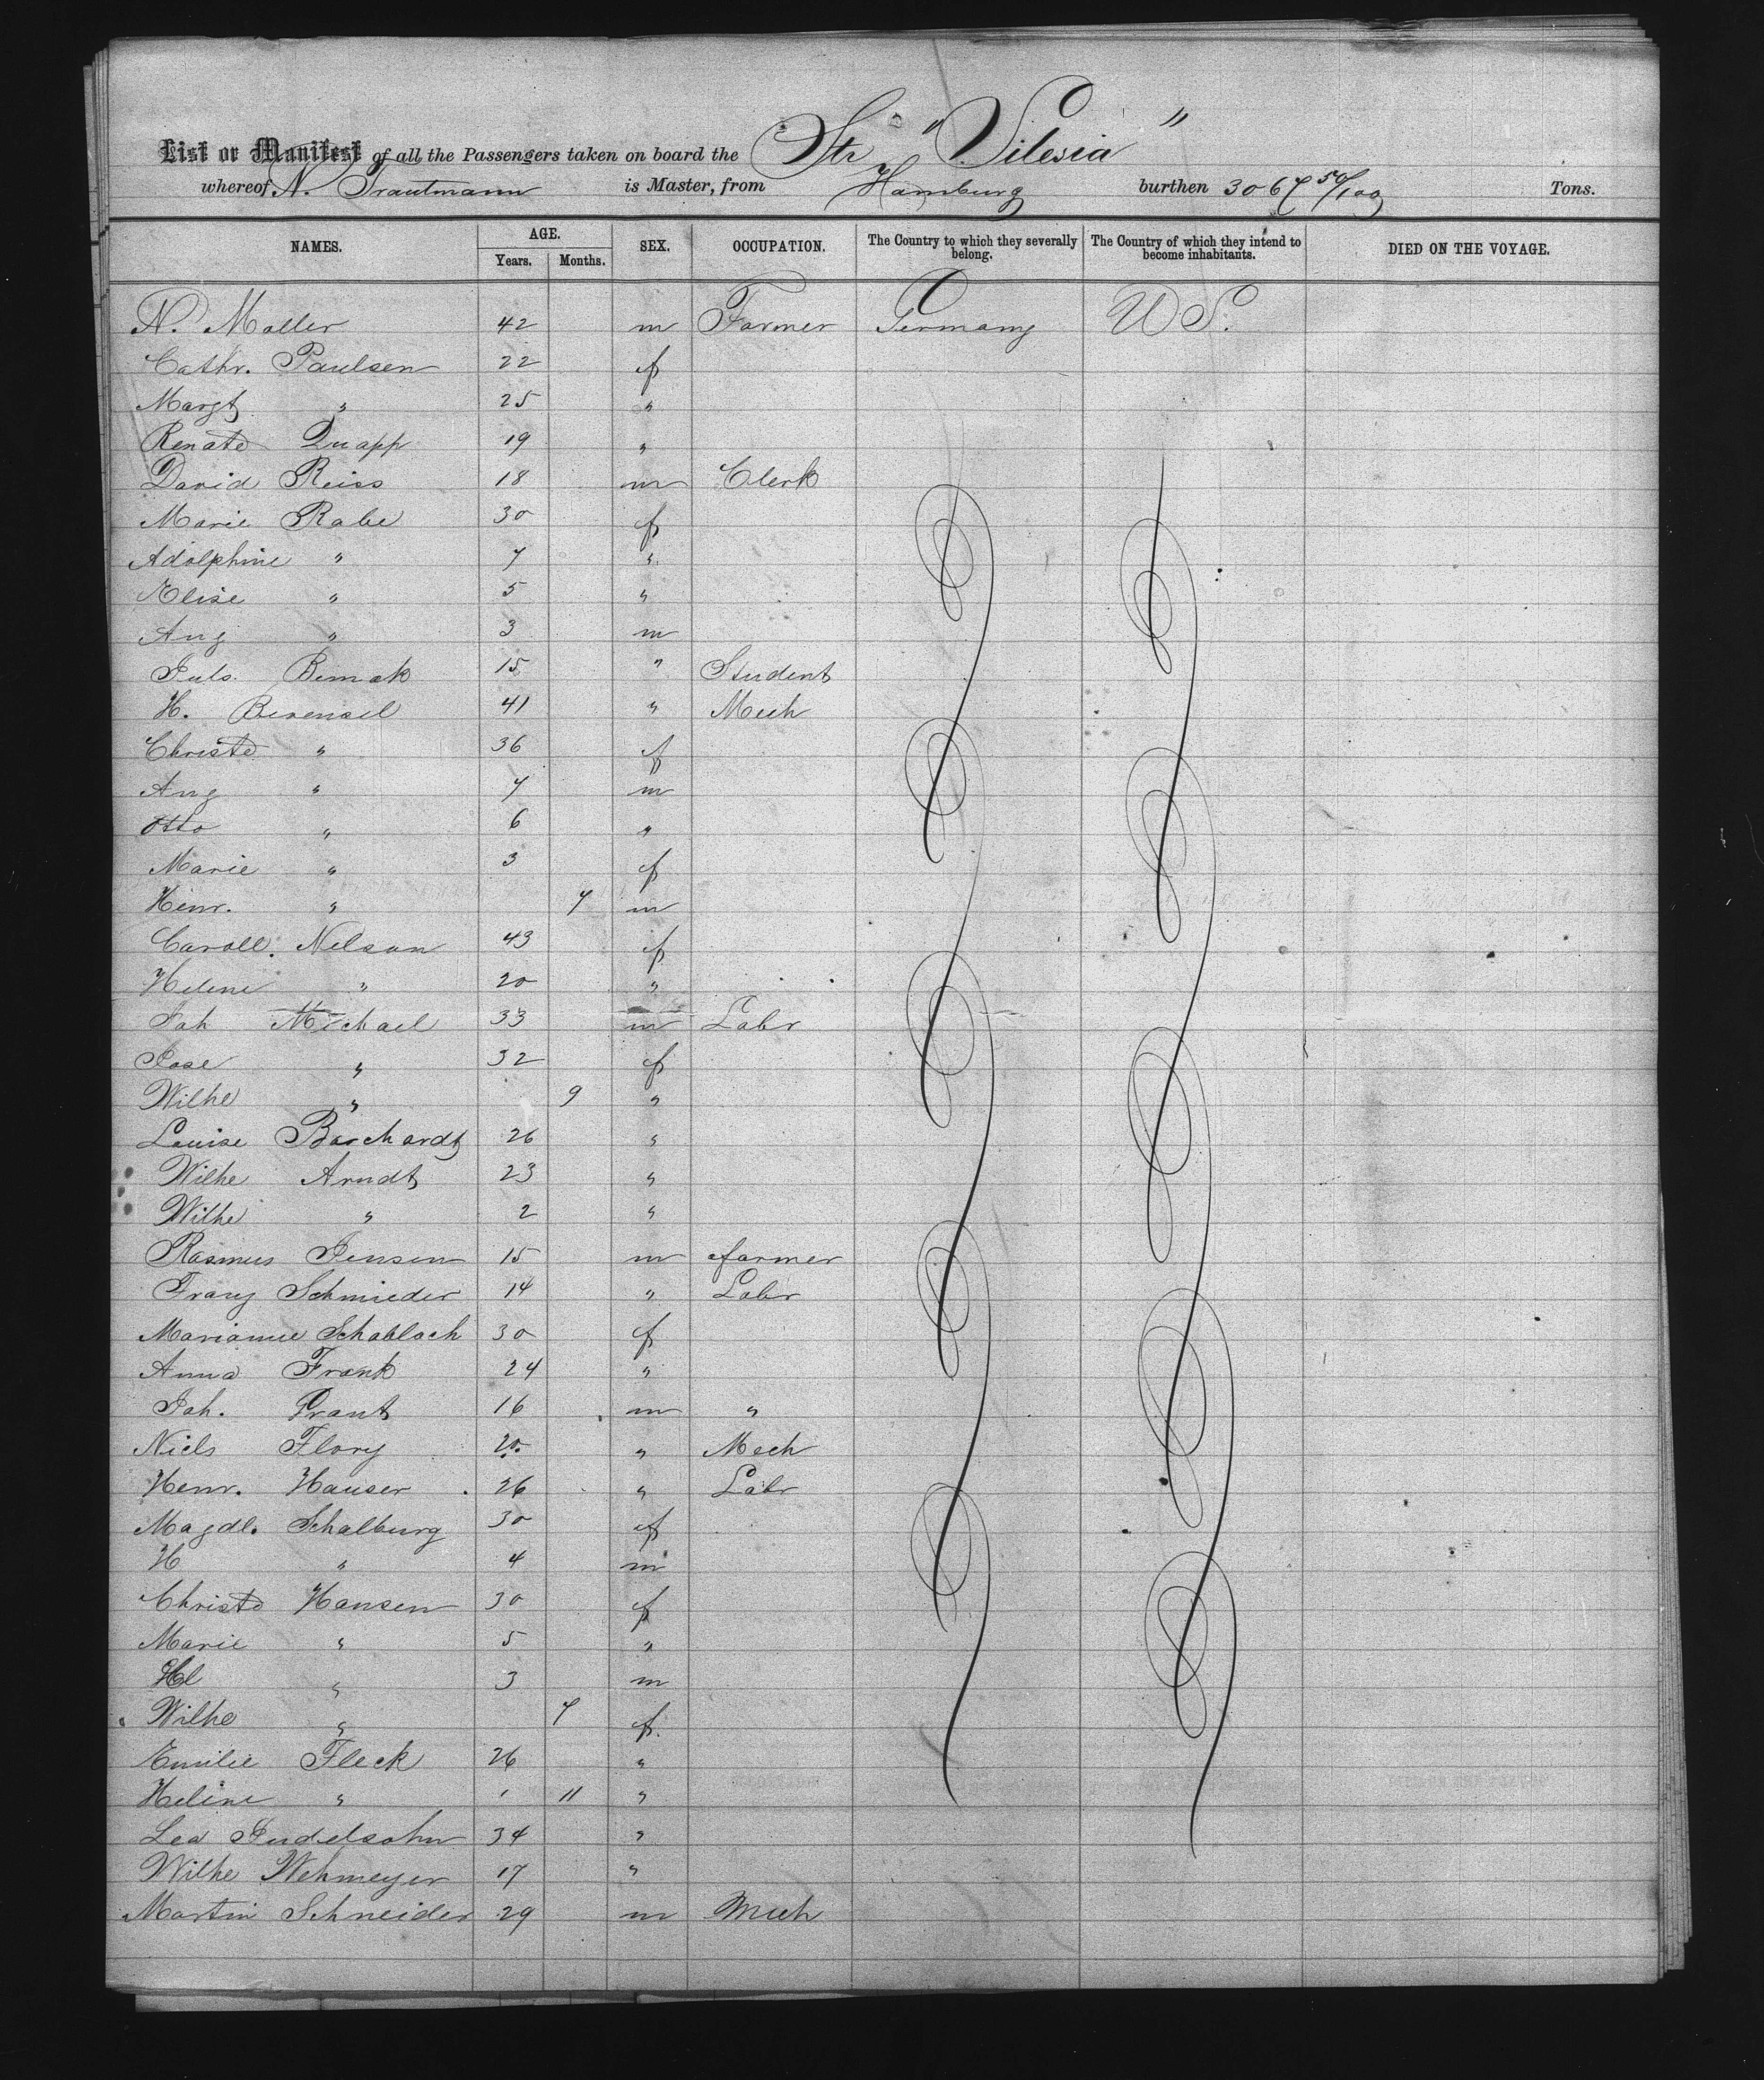 List or Manifest of all the Passengers taken on board the Str "Silesia"
whereof N. Trautmann is Master, from Hamburg burthen 3067 50/100 Tons.
NAMES. AGE. Years. Months. SEX. OCCUPATION. The Country to which they severally belong. The Country of which they intend to become inhabitants. DIED ON THE VOYAGE.
N. Moller 42 m Farmer Germany U S.
Cathr. Paulsen 22 f
Margt " 25 "
Renate Quapp 19 "
David Reiss 18 m Clerk
Marie Rabe 30 f
Adolphine " 7 "
Elise " 5 "
Aug " 3 m
Juls. 15 " Student
H. 41 " Mech
Christe " 36 f
Aug " 7 m
Otto " 6 "
Marie " 3 f
Henr. " 7 m
Caroll. Nelson 43 f
Helene " 20 "
Joh Michael 33 m Labr
Jose " 32 f
Wilhe " 9 "
Louise Borchardt 26 "
Wilhe Arndt 23 "
Wilhe " 2 "
Rasmus Jensen 15 m farmer
Franz Schmieder 14 " Labr
Marianne Schablach 30 f
Anna Frank 24 "
Joh. Grant 16 m "
Niels Flory 20 " Mech
Henr. Hauser 26 " Labr
Magdl. Schalburg 30 f
H " 4 m
Christe Hansen 30 f
Marie " 5 "
Hl " 3 m
Wilhe " 7 f
Emilie Fleck 26 "
Heline " 1 11 "
Lea Judelsohn 34 "
Wilhe Wehmeyer 17 "
Martin Schneider 29 m Mech